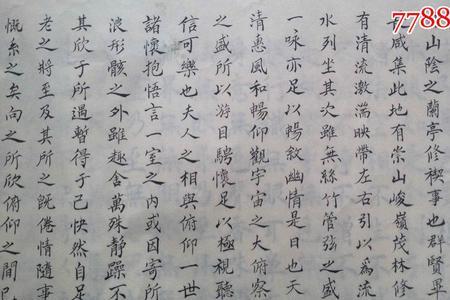 7788
山陰之蘭亭修禊事也群賢畢
咸集此地有崇山峻嶺茂林修
有清流激湍映帶左右引以為流
水列坐其次雖無絲竹管弦之盛
一咏亦足以暢敘幽情是日也天
清惠風和暢仰觀宇宙之大俯察
之盛所以游目騁懷足以極視聽
信可樂也夫人之相與俯仰一世
諸懷抱悟言一室之內或因寄所
浪形骸之外雖趣舍萬殊靜躁不
其欣于所遇暫得于己快然自足
老之將至及其所之既倦情隨事
慨系之矣向之所欣俯仰之間已